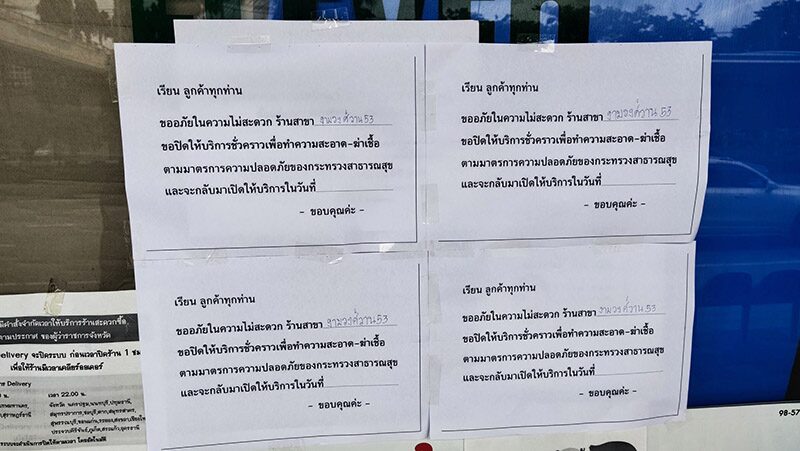 เรียน ลูกค้าทุกท่าน
ขออภัยในความไม่สะดวก ร้านสาขา งามวงศ์วาน 53
ขอปิดให้บริการชั่วคราวเพื่อทำความสะอาด-ฆ่าเชื้อ
ตามมาตรการความปลอดภัยของกระทรวงสาธารณสุข
และจะกลับมาเปิดให้บริการในวันที่
- ขอบคุณค่ะ -
เรียน ลูกค้าทุกท่าน
ขออภัยในความไม่สะดวก ร้านสาขา งามวงศ์วาน 53
ขอปิดให้บริการชั่วคราวเพื่อทำความสะอาด-ฆ่าเชื้อ
ตามมาตรการความปลอดภัยของกระทรวงสาธารณสุข
และจะกลับมาเปิดให้บริการในวันที่
- ขอบคุณค่ะ -
เรียน ลูกค้าทุกท่าน
ขออภัยในความไม่สะดวก ร้านสาขา งามวงศ์วาน 53
ขอปิดให้บริการชั่วคราวเพื่อทำความสะอาด-ฆ่าเชื้อ
ตามมาตรการความปลอดภัยของกระทรวงสาธารณสุข
และจะกลับมาเปิดให้บริการในวันที่
- ขอบคุณค่ะ -
เรียน ลูกค้าทุกท่าน
ขออภัยในความไม่สะดวก ร้านสาขา งามวงศ์วาน 53
ขอปิดให้บริการชั่วคราวเพื่อทำความสะอาด-ฆ่าเชื้อ
ตามมาตรการความปลอดภัยของกระทรวงสาธารณสุข
และจะกลับมาเปิดให้บริการในวันที่
- ขอบคุณค่ะ -
มีคำสั่งจำกัดเวลาให้บริการร้านสะดวกซื้อ
ตามประกาศ ของผู้ว่าราชการจังหวัด
Delivery จะปิดระบบ ก่อนเวลาปิดร้าน 1 ชม
เพื่อให้ร้านมีเวลาเคลียร์ออเดอร์
Delivery
เวลา 22.00 น.
98-57